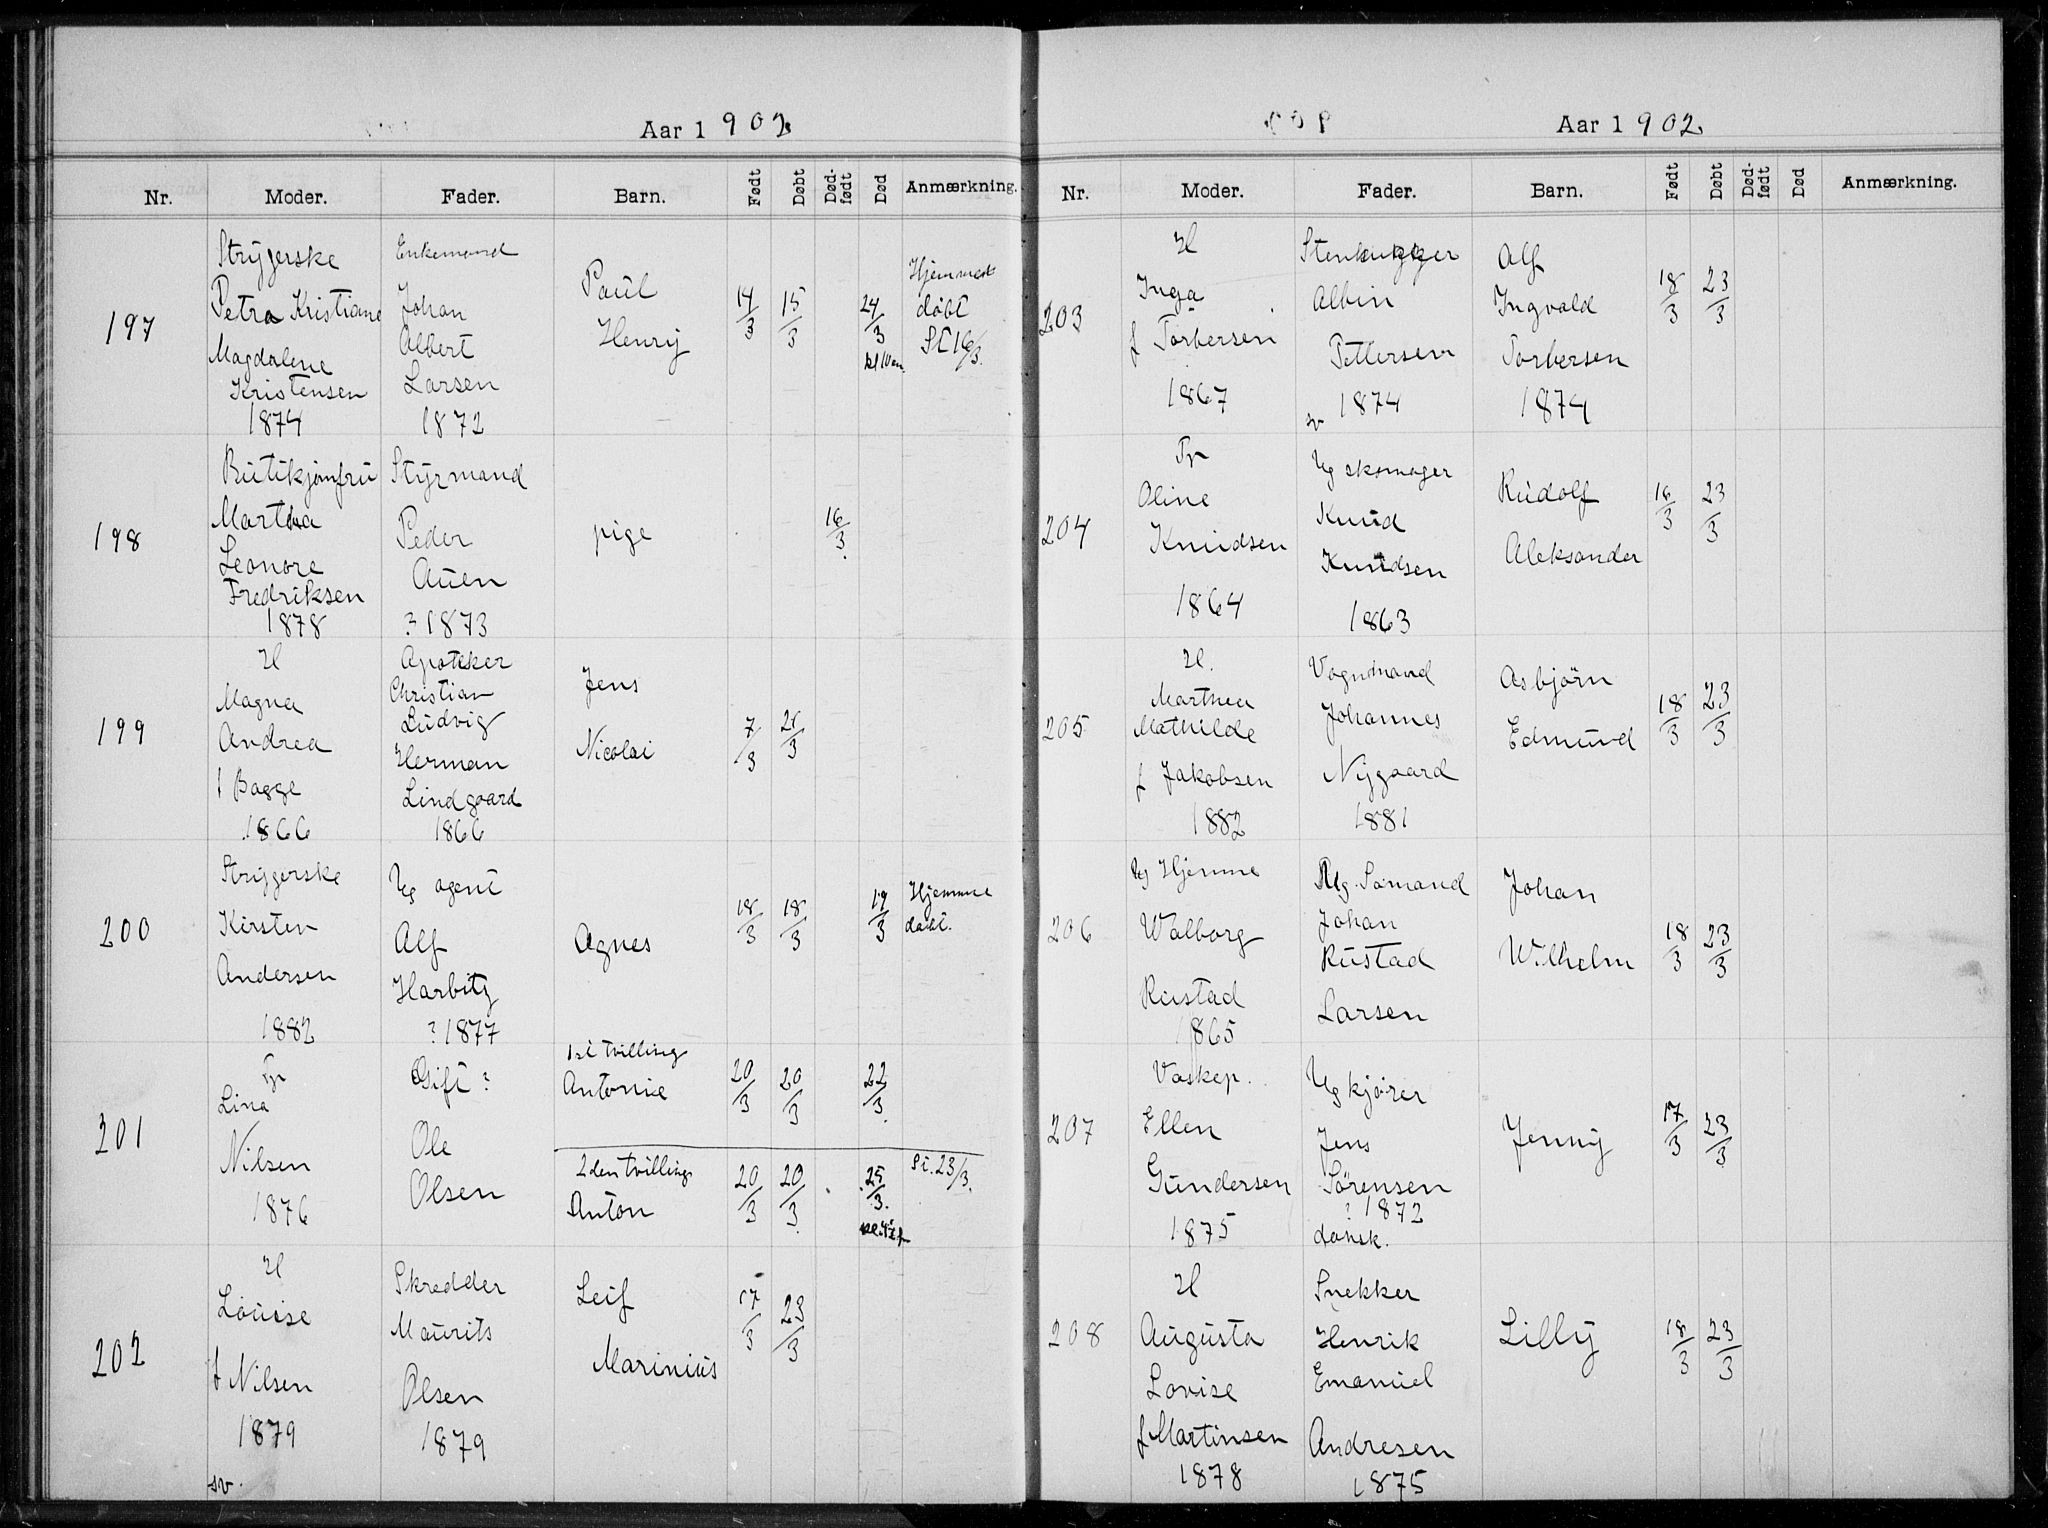 Aar 1902.
Nr. Moder. Fader. Barn. Født Døbt Død-født Død Anmærkning.
197
Strygerske
Petra Kristiane
Magdalene
Kristensen
1874
Enkemand
Johan
Albert
Larsen
1872
Paul
Henry
14/3 15/3 24/3
Hjemmed
døbt
St 16/3.
198
Butikjomfru
Martha
Leonore
Fredriksen
1878
Styrmand
Peder
Auen
? 1873
pige
16/3.
199
H
Magna
Andrea
f Bagge
1866
Apoteker
Christian
Ludvig
Herman
Lindgaard
1866
Jens
Nicolai
7/3 21/3
200
Strygerske
Kirsten
Andersen
1882
Ug agent
Alf
Harbitz
? 1877
Agnes
18/3 18/3 19/3
Hjemme
døbt.
201
Tj
Lina
Nilsen
1876
Gift ?
Ole
Olsen
1st tvilling
Antonie
20/3 20/3 22/3.
2den tvilling
Anton
20/3 20/3. 25/3.
St. 23/3.
202
H
Louise
f Nilsen
1879
sv.
Skredder
Maurits
Olsen
1879
Leif
Marinius
17/3 23/3
Aar 1902.
Nr. Moder. Fader. Barn. Født Døbt Død-født Død Anmærkning.
203
H
Inga
f Torbersen
1867
Stenhugger
Albin
Pettersen
sv 1874
Alf
Ingvald
Torbersen
1874
18/3 23/3
204
Fr
Oline
Knudsen
1864
Ug skomager
Knud
Knudsen
1863
Rudolf
Aleksander
16/3 23/3
205
H.
Marthea
Mathilde
f Jakobsen
1882
Vognmand
Johannes
Nygaard
1881
Asbjørn
Edmund
18/3 23/3
206
Ug Hjemme
Walborg
Rustad
1865
Ug. Sømand
Johan
Rustad
Larsen
Johan
Wilhelm
18/3 23/3
207
Vaskep.
Ellen
Gundersen
1875
Ug kjører
Jens
Sørensen
? 1872
dansk.
Jenny
17/3 23/3
208
H
Augusta
Lovise
f Martinsen
1878
Snekker
Henrik
Emanuel
Andresen
1875
Lilly
18/3 23/3